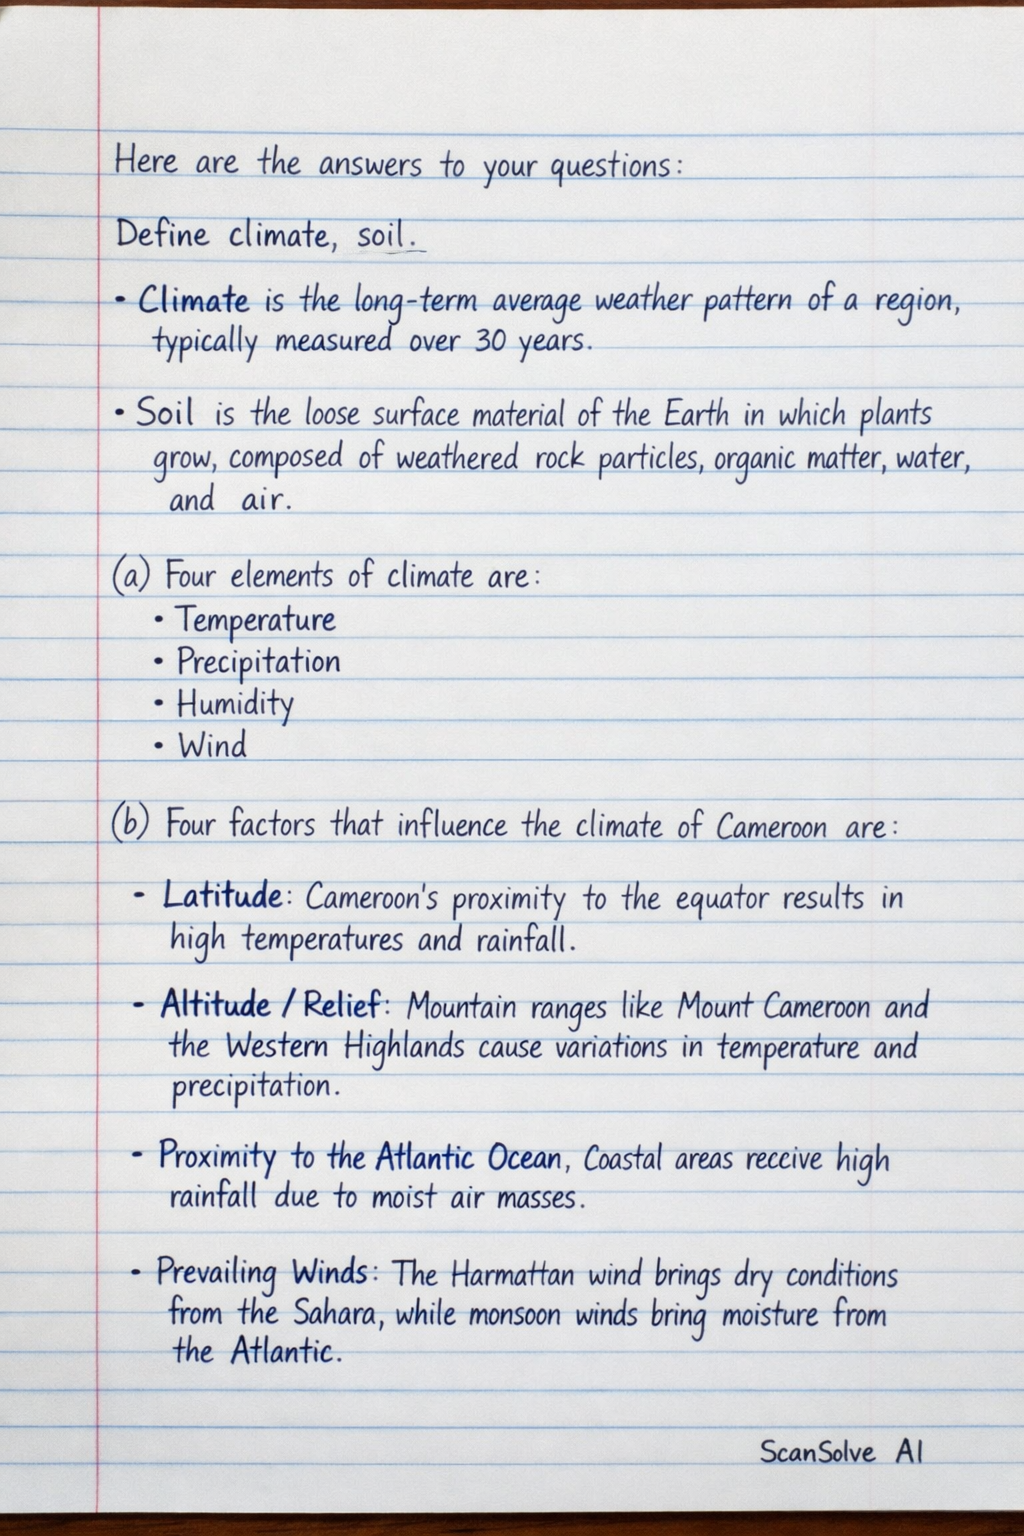 Here are the answers to your questions:
Define climate, soil.
• Climate is the long-term average weather pattern of a region,
typically measured over 30 years.
• Soil is the loose surface material of the Earth in which plants
grow, composed of weathered rock particles, organic matter, water,
and air.
(a) Four elements of climate are:
• Temperature
• Precipitation
• Humidity
• Wind
(b) Four factors that influence the climate of Cameroon are:
- Latitude: Cameroon's proximity to the equator results in
high temperatures and rainfall.
- Altitude / Relief: Mountain ranges like Mount Cameroon and
the Western Highlands cause variations in temperature and
precipitation.
- Proximity to the Atlantic Ocean, Coastal areas receive high
rainfall due to moist air masses.
- Prevailing Winds: The Harmattan wind brings dry conditions
from the Sahara, while monsoon winds bring moisture from
the Atlantic.
ScanSolve AI